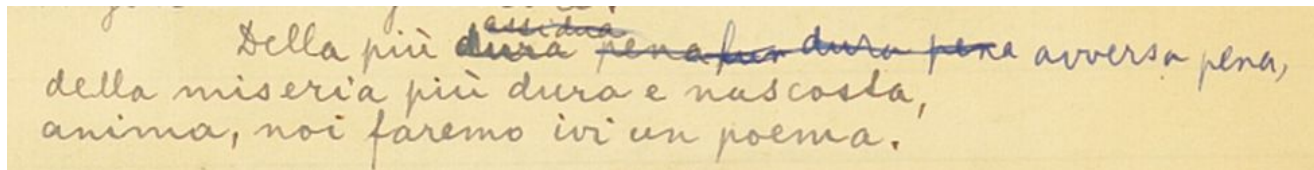 assidua
Della più dura pena pur dura pena avversa pena,
della miseria più dura e nascosta,
anima, noi faremo ivi un poema.